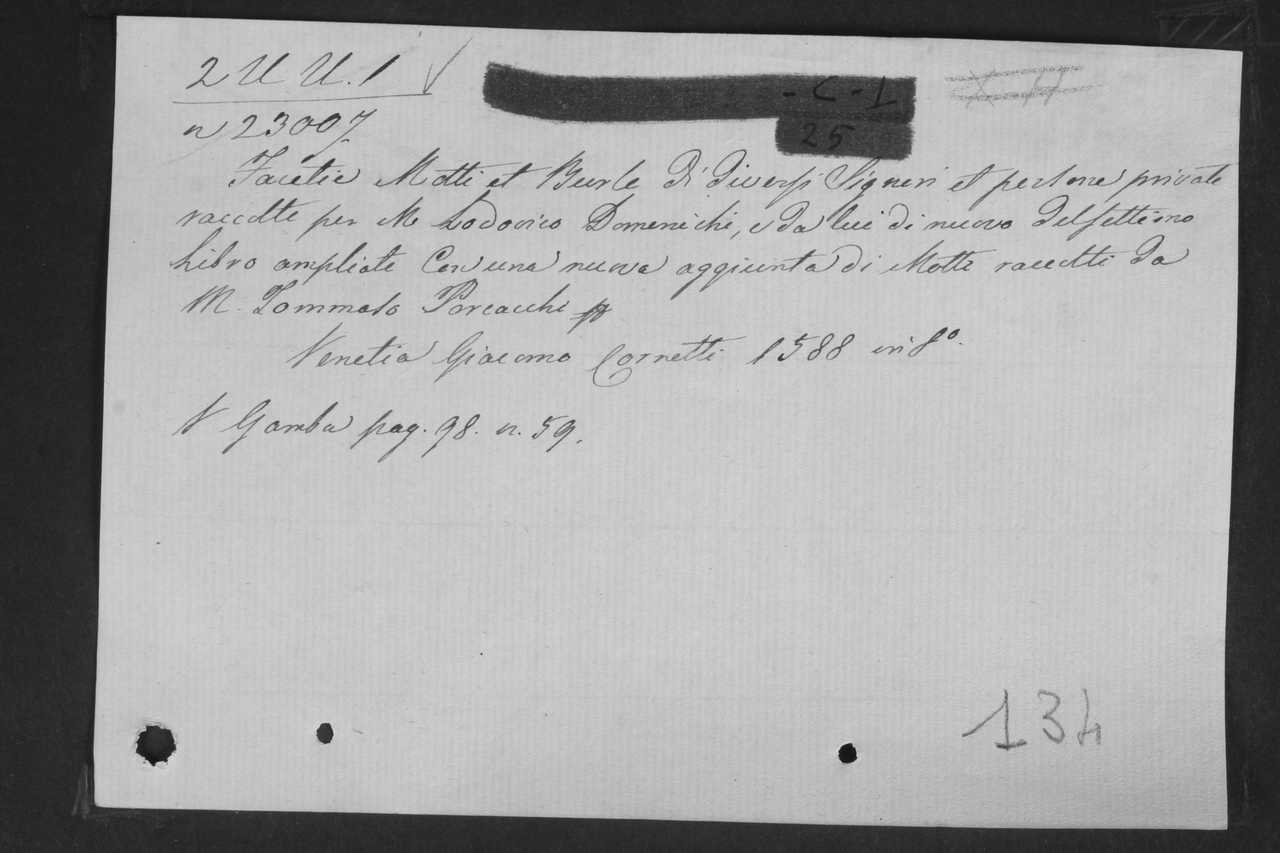 2 U U. 1 √
- C - 1
25
n 23007
Facetie Motti et Burle di diversi Signori et persone private
raccolte per M Lodovico Domenichi, e da lui di nuovo del settimo
libro ampliate Con una nuova aggiunta di Motti raccolti da
M. Tommaso Porcacchi
Venetia Giacomo Cornetti 1588 in 8º.
V Gamba pag. 98. n. 59.
134